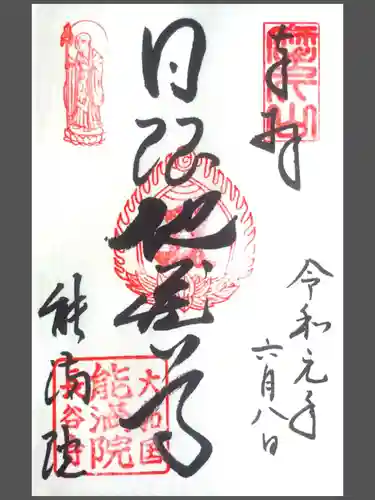 奉拝
日限地蔵尊
令和元年
六月八日
能満院
大和国
能満院
長谷寺